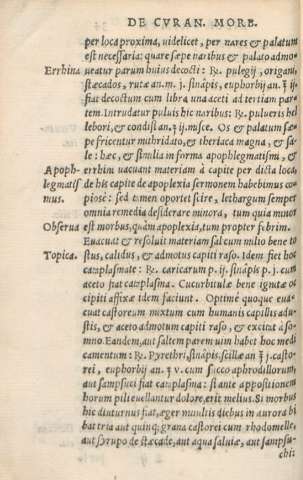 DE CVRAN. MORB.
per loca proxima, uidelicet, per nares & palatum
est necessaria: quare sæpe naribus & palato admo-
Errhina ueatur parum huius decocti: ℞. pulegij, origani,
stœcados, rutæ an. m. j. sinapis, euphorbij an. ʒ ij.
fiat decoctum cum libra una aceti ad tertiam par-
tem. Intrudatur puluis hic naribus: ℞. pulueris hel
lebori, & condisi an. ʒ ij. misce. Os & palatum sæ-
pe fricentur muthridato, & theriaca magna, & sa-
le: hæc, & similia in forma apophlegmatismi, &
Apoph- errhim uacuant materiam à capite per dicta loca,
legmatis his capite de apoplexia sermonem habebimus co-
mus. piose: sed tamen oportet scire, lethargum semper
omnia remedia desiderare minora, tum quia minor
Obserua est morbus, quàm apoplexia, tum propter febrim.
Euacuat & resoluit materiam sal cum milio bene to
Topica. stus, calidus, & admotus capiti raso. Idem fiet hoc
cataplasmate: ℞. caricarum p. ij. sinapis p. j. cum
aceto fiat cataplasma. Cucurbitulæ bene ignitæ oc
cipiti affixæ idem faciunt. Optimè quoque eua-
cuat castoreum mixtum cum humanis capillis adu-
stis, & aceto admotum capiti raso, & excitat à so-
mno. Eandem, aut saltem parem uim habet hoc medi
camentum: ℞. Pyrethri, sinapis, scillæ an ʒ j. casto-
rei, euphorbij an. ʒ v. cum succo aphrodillorum,
aut sampsuci fiat cataplasma: si ante appositionem
horum pili euellantur dolore, erit melius. Si morbus
hic diuturnus fiat, æger multis diebus in aurora bi
bat tria aut quinque grana castorei cum rhodomelle,
aut syrupo de stœcade, aut aqua saluiæ, aut sampsu-
chi: